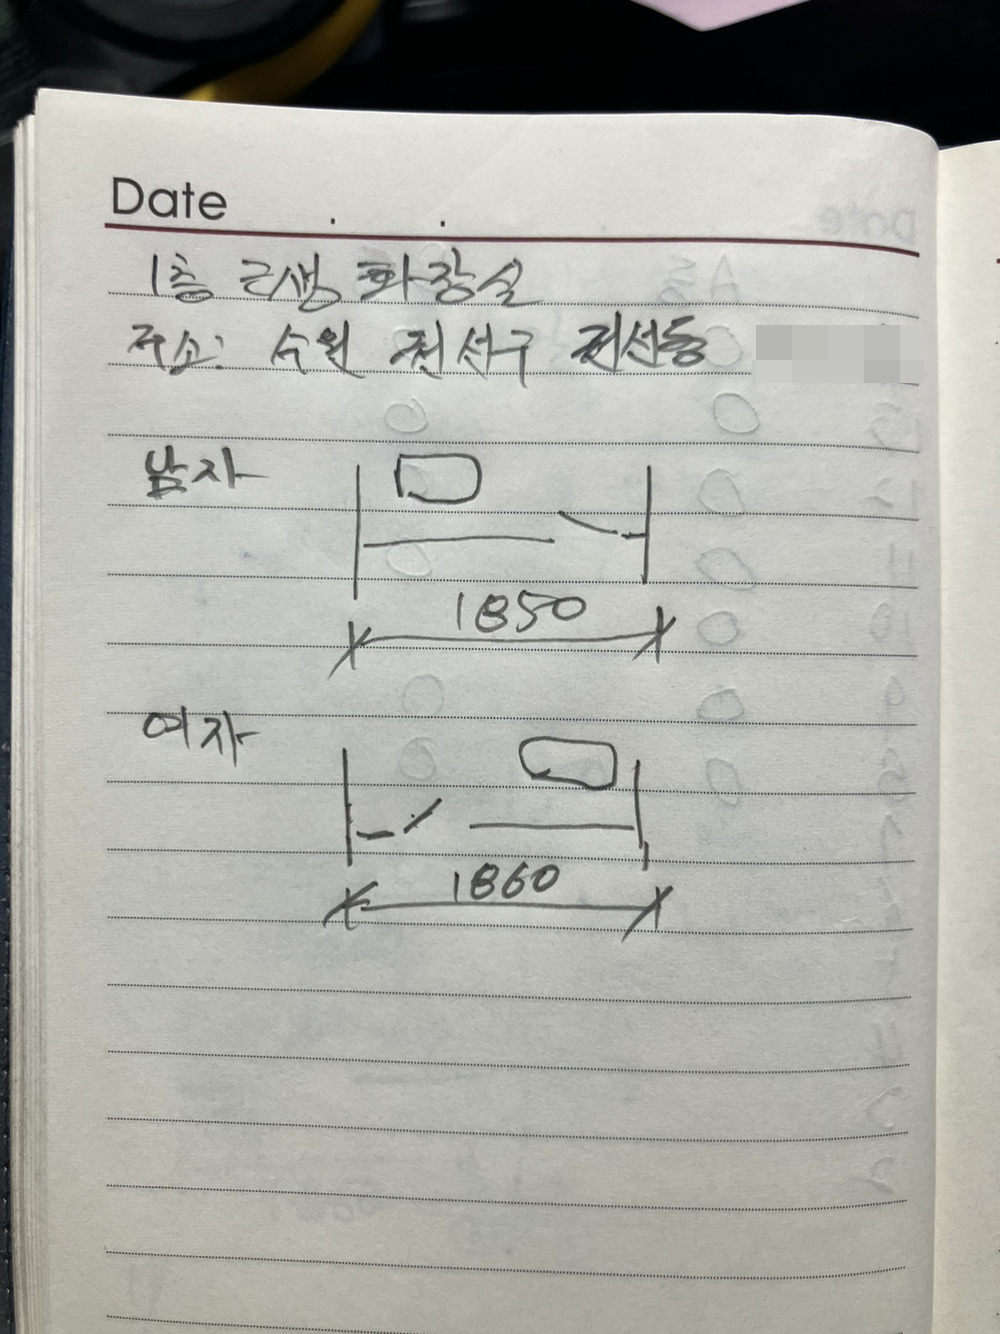 Date . .
1층 근생 화장실
주소: 수원 권선구 권선동
남자
1850
여자
1860